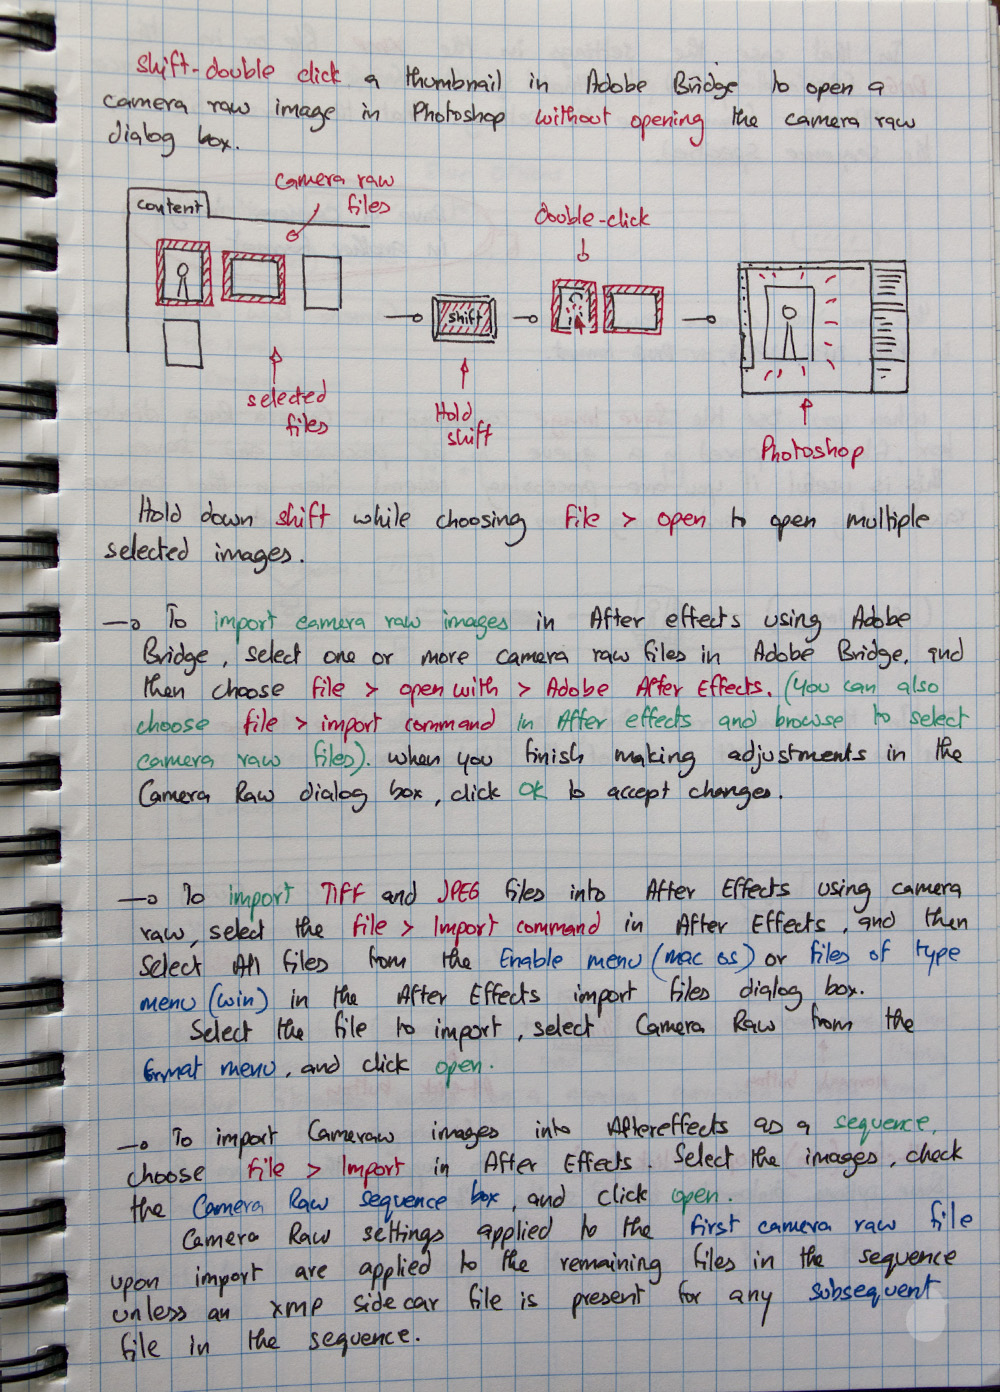 Shift-double click a thumbnail in Adobe Bridge to open a
camera raw image in Photoshop without opening the camera raw
dialog box.
camera raw
files
content
double-click
shift
selected
files
Hold
shift
Photoshop
Hold down shift while choosing file > open to open multiple
selected images.
→ To import camera raw images in After effects using Adobe
Bridge, select one or more camera raw files in Adobe Bridge, and
then choose file > open with > Adobe After Effects. (You can also
choose file > import command in After effects and browse to select
camera raw files). when you finish making adjustments in the
Camera Raw dialog box, click OK to accept changes.
→ To import TIFF and JPEG files into After Effects using camera
raw, select the file > Import command in After Effects, and then
Select All files from the Enable menu (mac os) or files of type
menu (win) in the After Effects import files dialog box.
Select the file to import, select Camera Raw from the
format menu, and click open.
→ To import Cameraw images into Aftereffects as a sequence,
choose file > Import in After Effects. Select the images, check
the Camera Raw sequence box, and click open.
Camera Raw settings applied to the first camera raw file
upon import are applied to the remaining files in the sequence
unless an xmp sidecar file is present for any subsequent
file in the sequence.